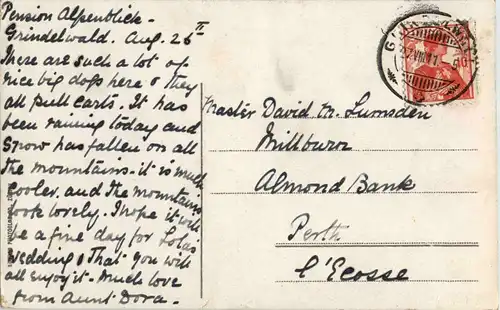 Pension Alpenblick -
Grindelwald. Aug. 26th
There are such a lot of
nice big dogs here & they
all pull carts. It has
been raining today and
snow has fallen on all
the mountains - it is much
cooler, and the mountains
look lovely. I hope it will
be a fine day for Lola's
wedding & that you will
all enjoy it - Much love
from Aunt Dora -
Master David M. Lumsden
Millburn
Almond Bank
Perth
l'Ecosse
10